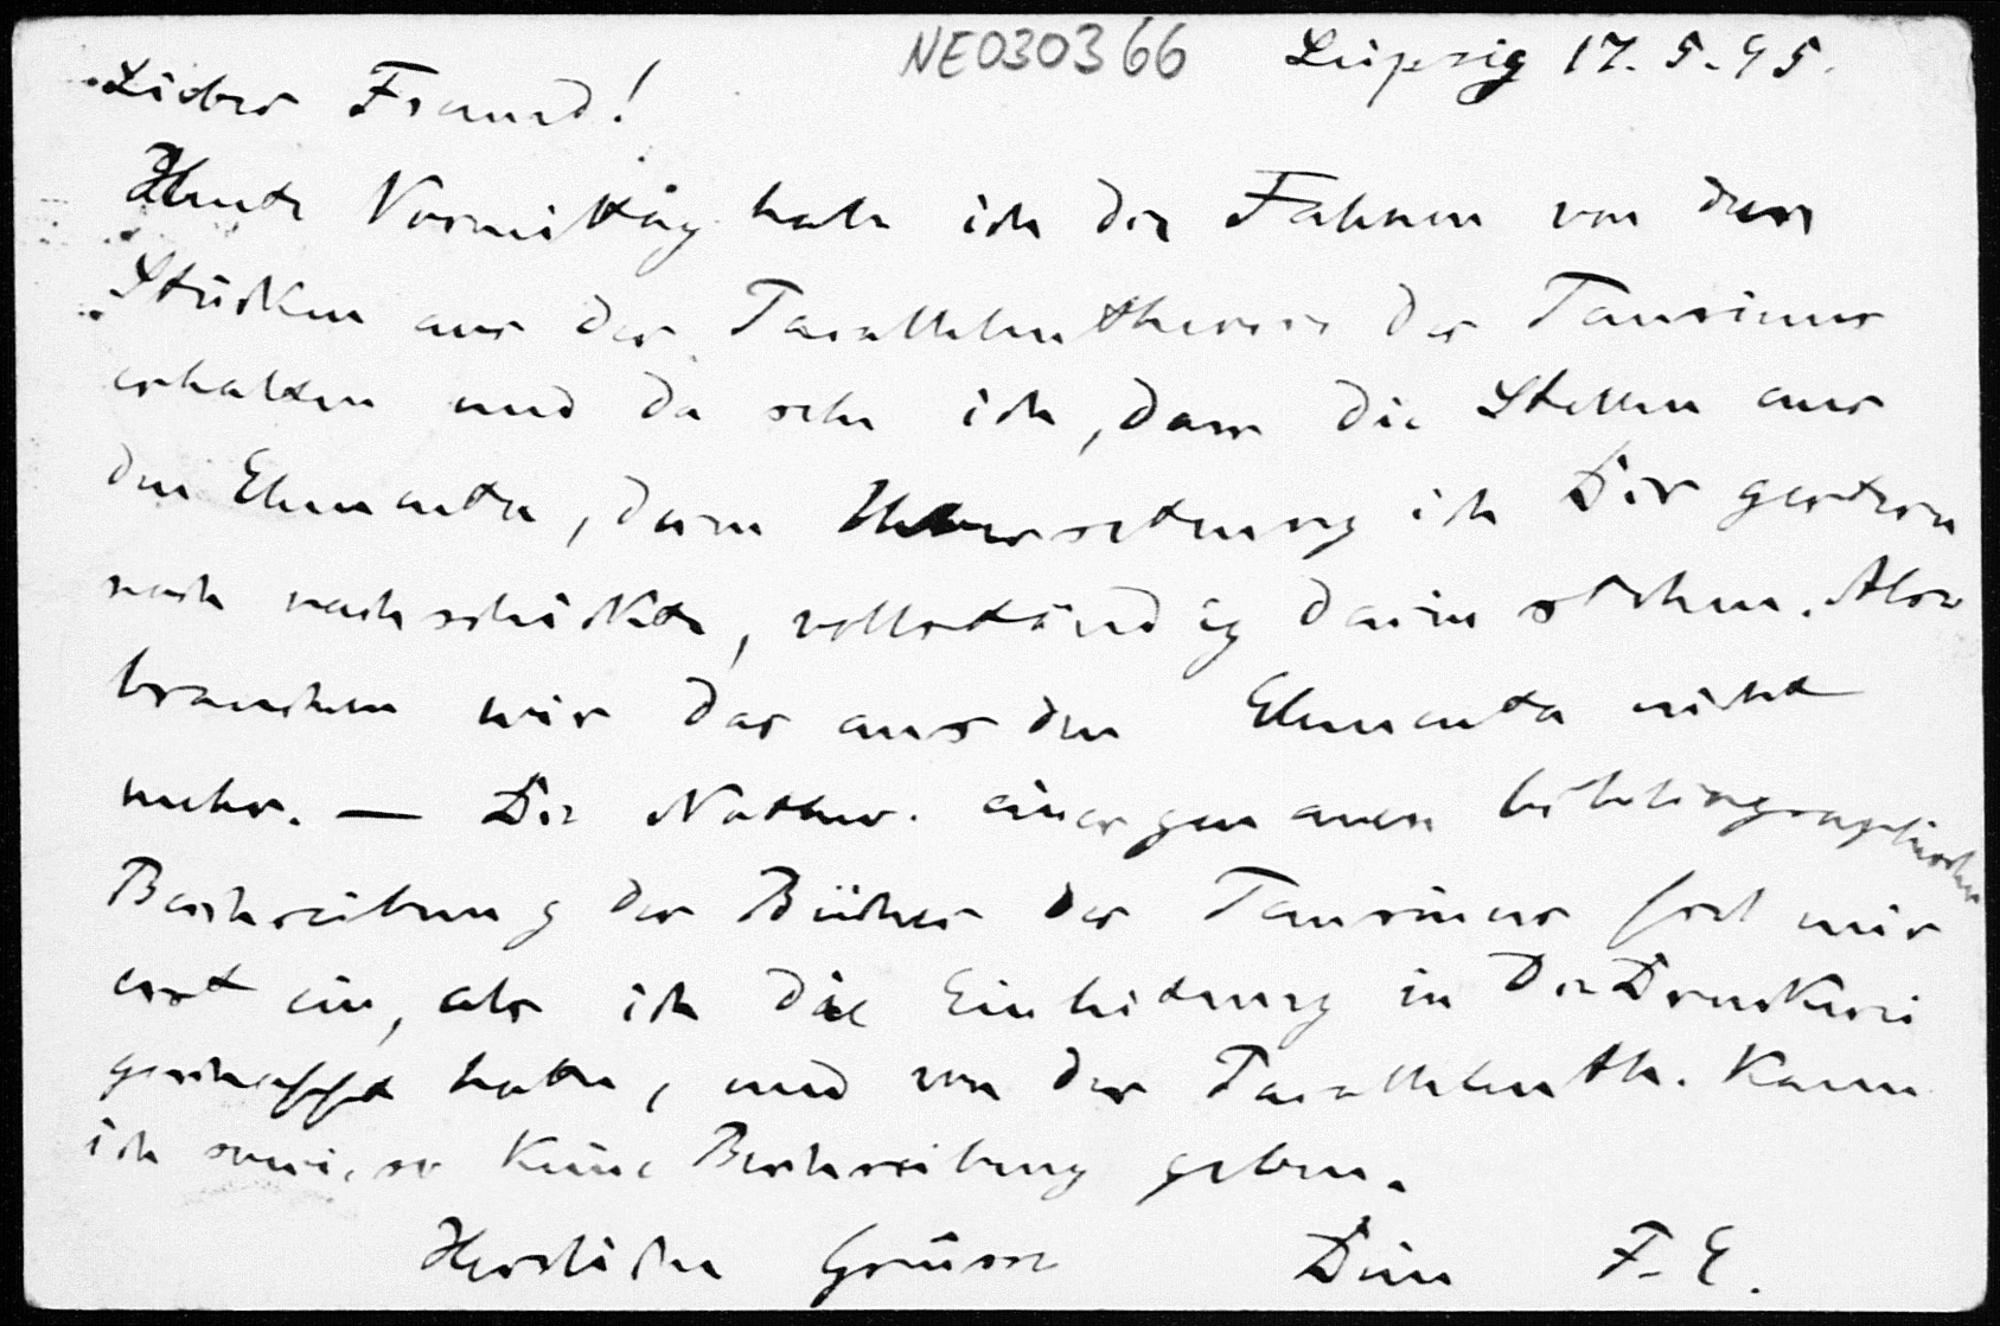 NE030366 Leipzig 17.5.95.
Lieber Freund!
Heute Vormittag habe ich die Fahnen von den
Stücken aus der Parallelentheorie des Taurinus
erhalten und da sehe ich, dass die Stellen aus
den Elementa, deren Uebersetzung ich Dir gestern
noch nachschickte, vollständig darin stehen. Also
brauchen wir das aus den Elementa nicht
mehr. — Die Nothw. einer genauen bibliographischen
Beschreibung der Bücher des Taurinus fiel mir
erst ein, als ich die Einleitung in die Druckerei
geschafft hatte, und von der Parallelenth. kann
ich sowieso keine Beschreibung geben.
Herzliche Grüsse Dein F. E.